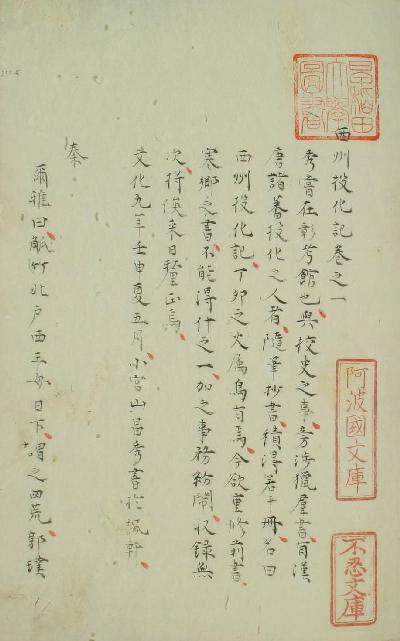 西州投化記卷之一
秀嘗在彰考館也與校史之事旁涉獵羣書有漢
唐諸蕃投化之人者隨筆抄書積得若干冊名曰
西州投化記丁卯之火屬烏有焉今欲重修前書
寒鄉之書不能得什之一加之事務紛鬧収錄無
次将俟来日釐正焉
文化九年壬申夏五月小宮山昌秀書於
秦
爾雅曰觚竹北戶西王母日下謂之四荒郭璞
早稲田大學圖書
阿波國文庫
不忍文庫